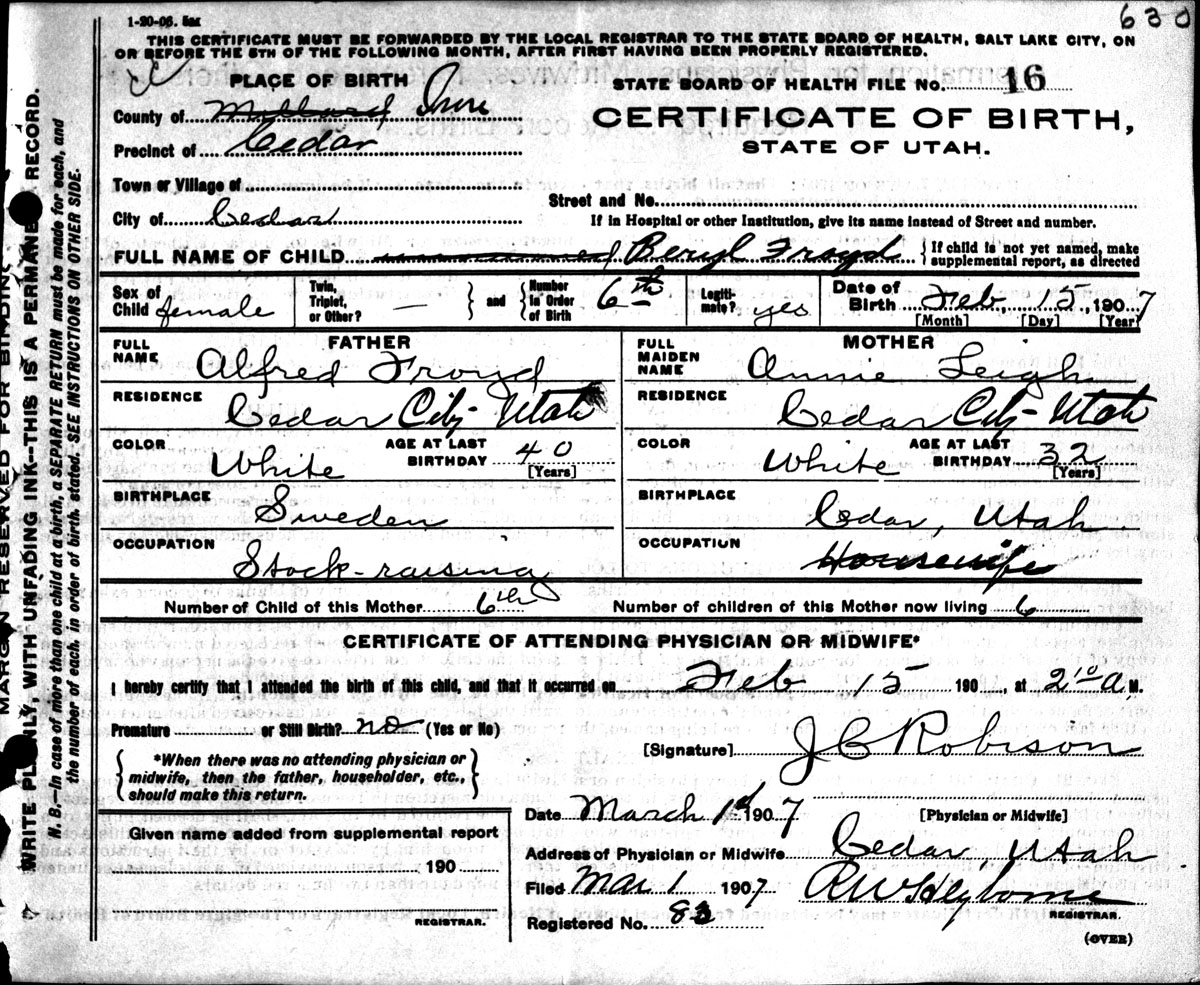 630
1-20-06. 5M
THIS CERTIFICATE MUST BE FORWARDED BY THE LOCAL REGISTRAR TO THE STATE BOARD OF HEALTH, SALT LAKE CITY, ON
OR BEFORE THE 5TH OF THE FOLLOWING MONTH, AFTER FIRST HAVING BEEN PROPERLY REGISTERED.
PLACE OF BIRTH
STATE BOARD OF HEALTH FILE NO. 16
County of Millard Iron
CERTIFICATE OF BIRTH,
Precinct of Cedar
STATE OF UTAH.
Town or Village of
Street and No.
City of Cedar
If in Hospital or other Institution, give its name instead of Street and number.
FULL NAME OF CHILD unnamed Beryl Froyd { If child is not yet named, make supplemental report, as directed
Sex of Child female Twin, Triplet, or Other? — } and { Number in Order of Birth 6th Legitimate? yes Date of Birth Feb. 15, 1907
[Month] [Day] [Year]
FATHER
MOTHER
FULL NAME Alfred Froyd
FULL MAIDEN NAME Annie Leigh
RESIDENCE Cedar City - Utah
RESIDENCE Cedar City - Utah
COLOR White AGE AT LAST BIRTHDAY 40 [Years]
COLOR White AGE AT LAST BIRTHDAY 32 [Years]
BIRTHPLACE Sweden
BIRTHPLACE Cedar, Utah
OCCUPATION Stock-raising
OCCUPATION Housewife
Number of Child of this Mother 6th Number of children of this Mother now living 6
CERTIFICATE OF ATTENDING PHYSICIAN OR MIDWIFE*
I hereby certify that I attended the birth of this child, and that it occurred on Feb 15 190 , at 2 A M.
Premature or Still Birth? no (Yes or No)
[Signature] J C Robison
{ *When there was no attending physician or midwife, then the father, householder, etc., should make this return. }
Date March 1st 1907 [Physician or Midwife]
Given name added from supplemental report
190
REGISTRAR.
Address of Physician or Midwife Cedar, Utah
Filed Mar 1 1907
REGISTRAR.
Registered No.
(OVER)
MARGIN RESERVED FOR BINDING
WRITE PLAINLY, WITH UNFADING INK--THIS IS A PERMANENT RECORD.
N. B.—In case of more than one child at a birth, a SEPARATE RETURN must be made for each, and
the number of each, in order of birth, stated. SEE INSTRUCTIONS ON OTHER SIDE.